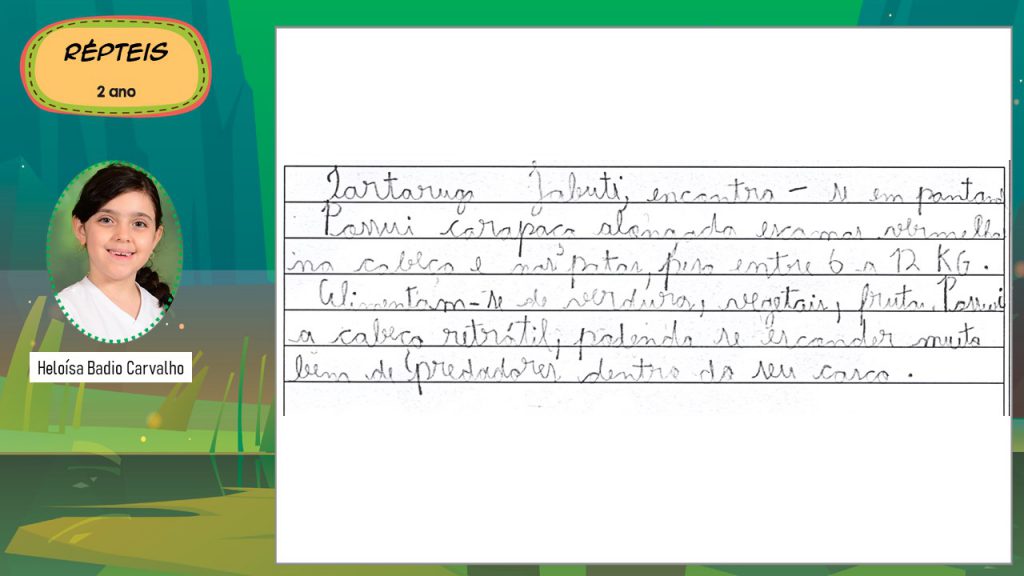 RÉPTEIS
2 ano
Heloísa Badio Carvalho
Tartaruga Jabuti, encontra - se em pantano
Possui carapaça alongada escamas vermelha
na cabeça e nas patas, pesa entre 6 a 12 KG.
Alimentam-se de verdura, vegetais, fruta. Possui
a cabeça retrátil, podendo se esconder muito
bem de predadores dentro do seu casco.